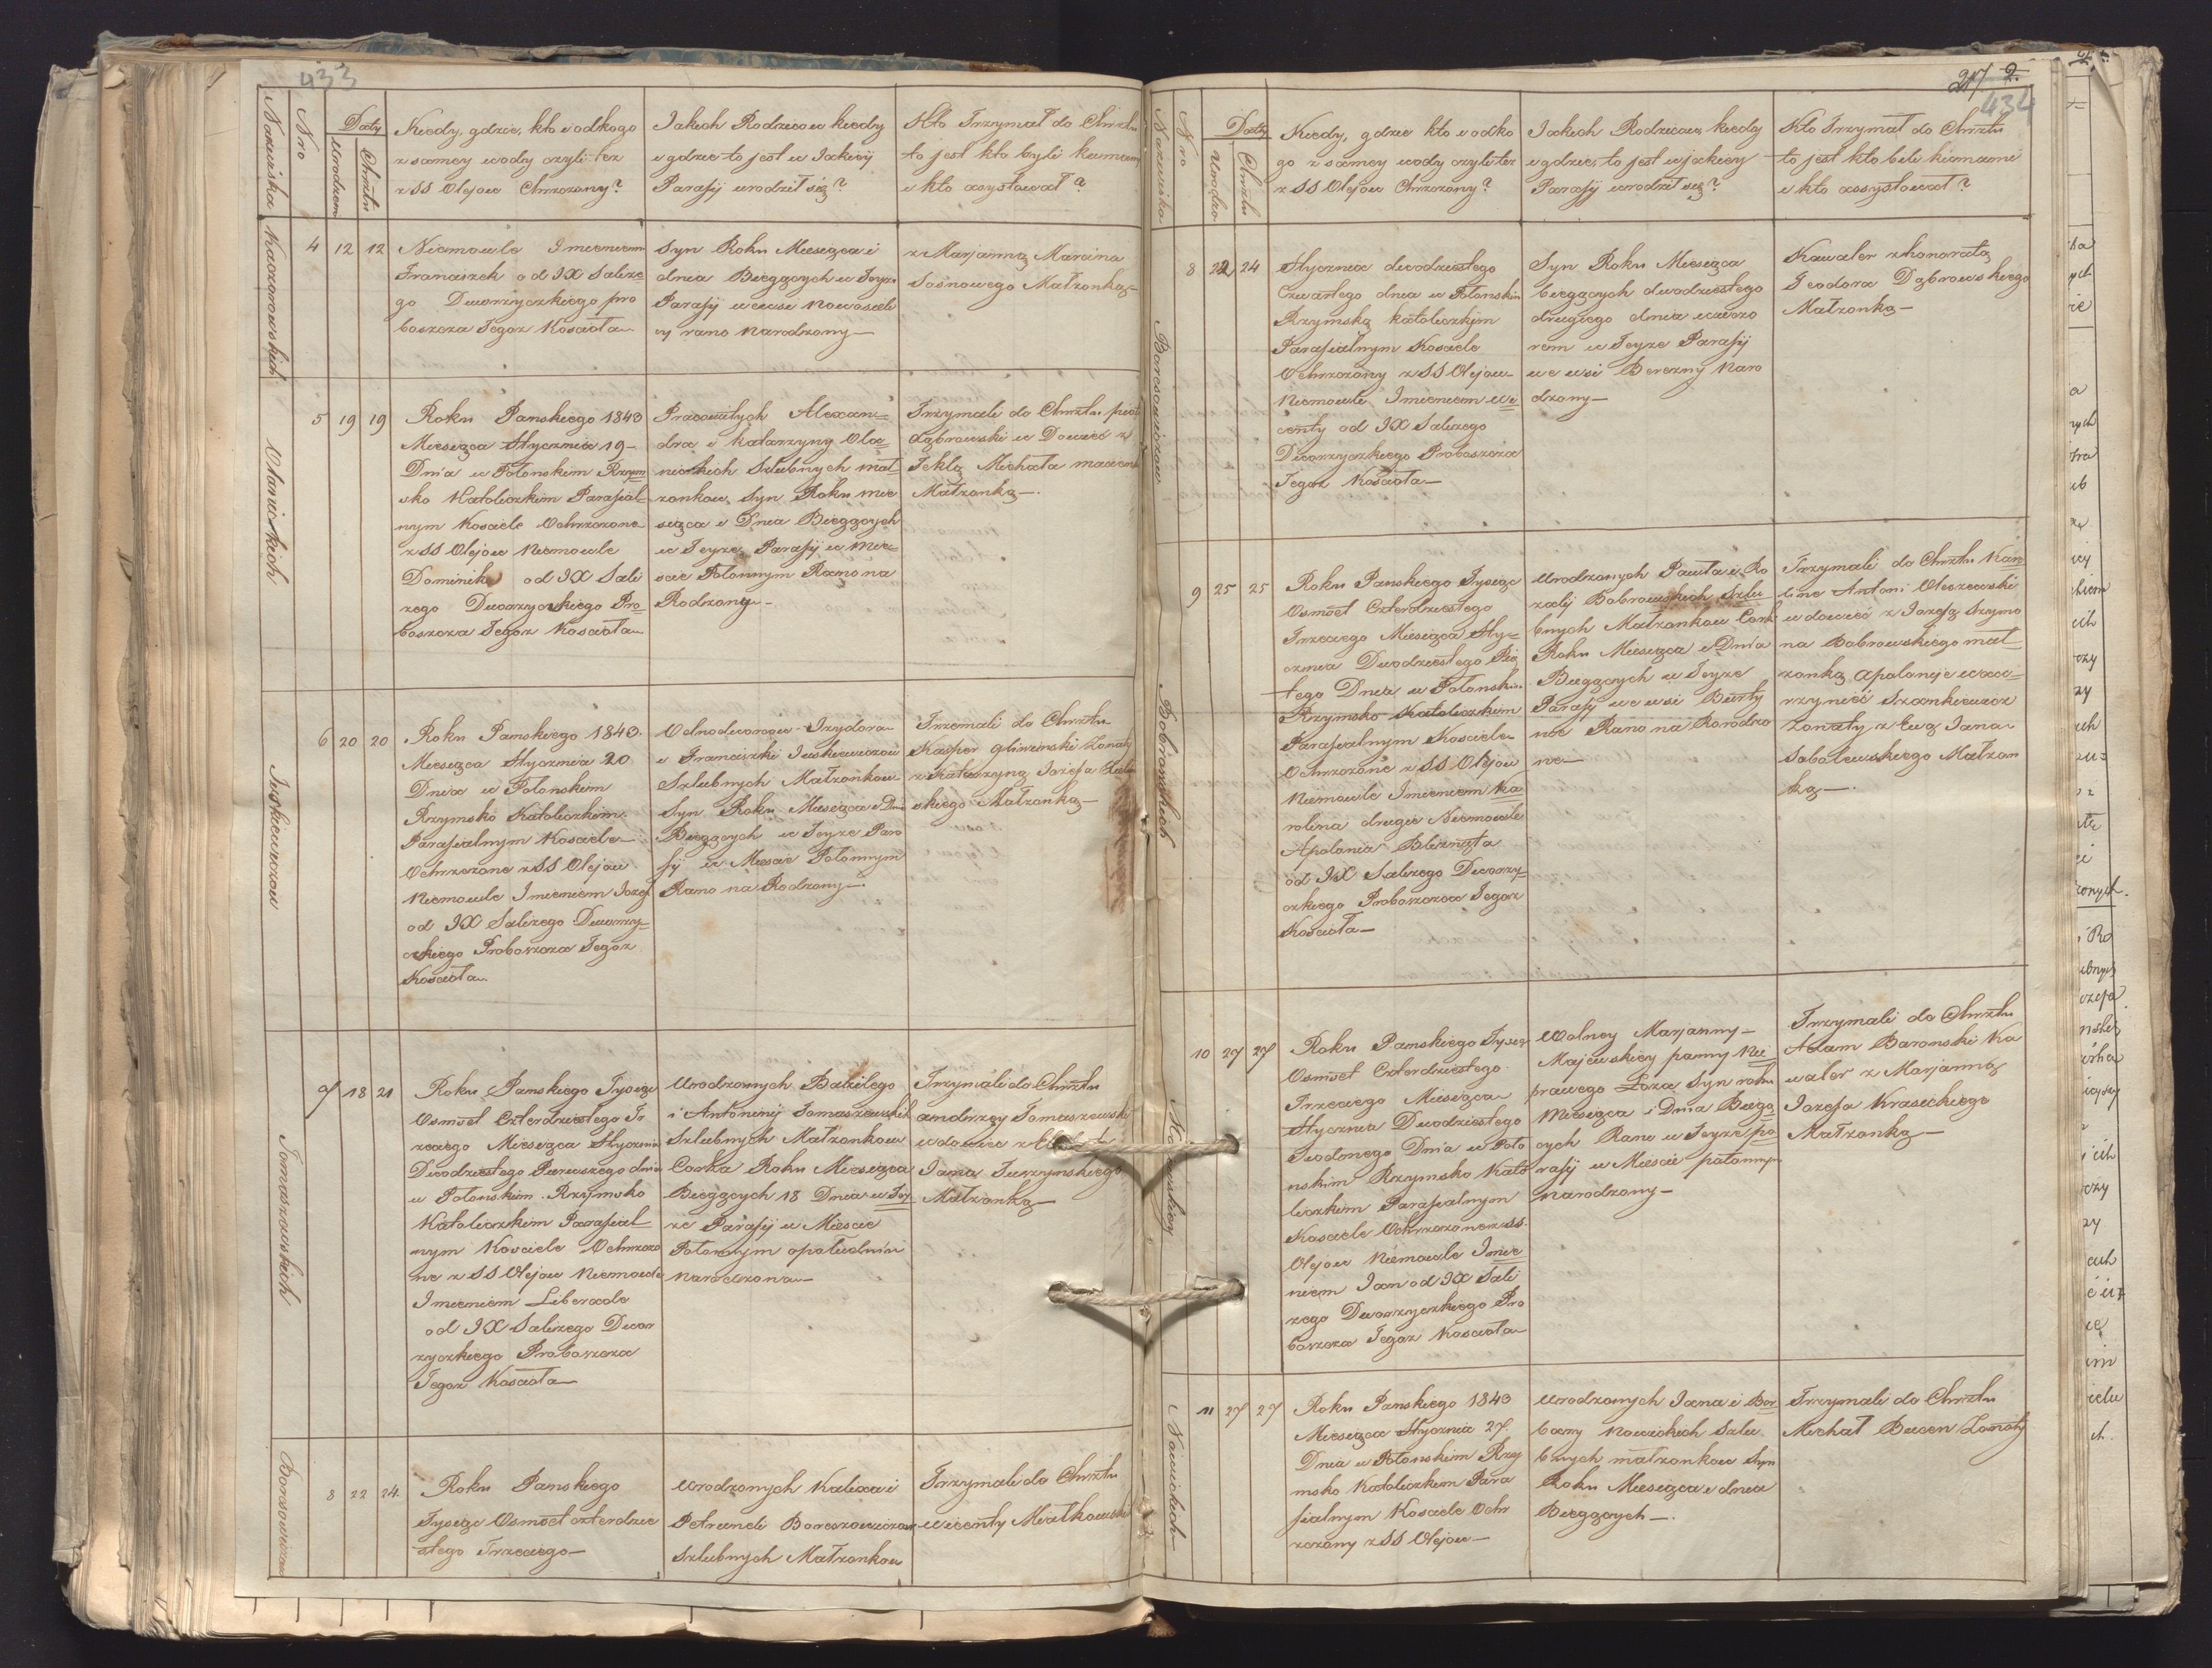 433
Nazwiska
Nro
Daty
Urodzen
Chrztu
Kiedy, gdzie, kto i od kogo
z samey wody czyli tez
z SS Olejow Chrzczony?
Jakich Rodzicow kiedy
i gdzie to jest w Jakiey
Parafij urodził się?
Kto Trzymał do Chrztu
to jest kto byli kumami
i kto assystował?
Kaczorowskich
4 12 12
Niemowle Imieniem
Franciszek od JX Saleze
go Dworzyczkiego pro
boszcza Tegoz Kosciola
Syn Roku Miesiąca i
dnia Biegących w Teyze
Parafij we wsi Nowosieli
cy rano Narodzony—
z Marjanną Marcina
Sosnowego Małzonką—
Olanickich
5 19 19
Roku Panskiego 1843
Miesiąca Stycznia 19-
Dnia w Połonskim Rzym
sko Katolickim Parafial
nym Kosciele Ochrzczono
z SS Olejow Niemowle
Dominik od JX Sali
zego Dworzyckiego Pro
boszcza Tegoz Kosciola
Pracowitych Alexan
dra i Katarzyny Ola
nickich Szlubnych mał
zonkow, Syn Roku mie
siąca i Dnia Biegących
w Teyze Parafij w mie
scie Połonnym Rano na
Rodzony—
Trzymali do Chrztu piotr
dąbrowski w Dowiec z
Teklą Michała
Małzonką—.
Juskiewiczow
6 20 20
Roku Panskiego 1843.
Miesiąca Stycznia 20
Dnia w Połonskim
Rzymsko Katolickim
Parafialnym Kosciele
Ochrzczono z SS Olejow
Niemowle Imieniem Jozef
od JX Salezego Dworzy
ckiego Proboszcza Tegoz
Kosciola
Odnodworcow Izydora
i Franciszki Juskiewiczow
Szlubnych Małzonkow
Syn Roku Miesiąca i Dnia
Biegących w Teyze Para
fij w Miescie Połonnym
Rano na Rodzony—
Trzemali do Chrztu
Kasper Glinzinski Zonaty
z Katarzyną Jozefa
skiego Małzonką—
Tomaszewskich
7 18 21
Roku Panskiego Tysiąc
Osmset Czterdziestego Tr
zeciego Miesiąca Stycznia
Dwodziestego Pierwszego dnia
w Połonskim Rzymsko
Katolickim Parafial
nym Kosciele Ochrzczo
ne z SS Olejow Niemowle
Imieniem Liberada
od JX Salezego Dwor
zyczkiego Proboszcza
Tegoz Kosciola
Urodzonych Bazilego
i Antoniny Tomaszewskich
Szlubnych Małzonkow
Corka Roku Miesiąca
Biegących 18 Dnia w Tey
ze Parafij w Miescie
Połonnym opoludniu
Narodzona—
Trzymali do Chrztu
andrzey Tomaszewski
wdowiec z
Jana Turzynskiego
Małzonką—
Boresowiczow
8 22 24.
Roku Panskiego
Tysiąc Osmset czterdzie
stego Trzeciego—
Urodzonych Kalixa i
Petruneli Boreszowiczow
Szlubnych Małzonkow
Trzymali do Chrztu
wicenty Miałkowski
217 2.
434
Nazwiska.
Nro
Daty
Urodze
Chrztu
Kiedy, gdzie kto i odko
go z samey wody czyli tez
z SS Olejow Chrzczony?
Jakich Rodzicow, kiedy
i gdzie, to jest w jakiey
Parafij urodził się?
Kto Trzymał do Chrztu
to jest kto beli kumami
i kto assystował?
Boresowiczow
8 22 24
Stycznia dwodziestego
Czwartego dnia w Połonskim
Rzymską katolickijm
Parafialnym Kosciele
Ochrzczony z SS Olejow
Niemowle Imieniem Wi
centy od JX Salezego
Dworzyczkiego Proboszcza
Tegoz Kosciola—
Syn Roku Miesiąca
biegących dwodziestego
drugiego dnia wieczo
rem w Teyze Parafij
we wsi Berezny Naro
dzony—
Kawaler z honoratą
Teodora Dąbrowskiego
Małzonką—
Bobrowskich
9 25 25
Roku Panskiego Tysiąc
Osmset Czterdziestego
Trzeciego Miesiąca Sty
cznia Dwodziestego Pią
tego Dnia w Połonskim
Rzymsko Katolickim
Parafialnym Kosciele
Ochrzczone z SS Olejow
Niemowle Imieniem Ka
rolina drugie Niemowle
Apolonia Blizniąta
od JX Salezego Dworzy
czkiego Proboszcza Tegoz
Kosciola—
Urodzonych Pawła i Ro
zalij Bobrowskich Szlu
bnych Małzonkow Cork
Roku Miesiąca i Dnia
Biegących w Teyze
Parafij we wsi Burty
nie Rano na Rorodzo
ne—
Trzymali do Chrztu Karo
line Antoni Oleszewski
wdowiec z Jozefą Szymo
na Bobrowskiego mał
zonką Apolonije waw
rzyniec Szamkiewicz
Zonaty z Ewą Jana
Sobolewskiego Małzon
ką—.
10 27 27
Roku Panskiego Tysiąc
Osmset Czterdziestego
Trzeciego Miesiąca
Stycznia Dwodziestego
Siodmego Dnia w Poło
nskim Rzymsko Kato
lickim Parafialnym
Kosciele Ochrzczone z SS.
Olejow Niemowle Imie
niem Jan od JX Sali
zego Dworzyczkiego Pro
boszcza Tegoz Kosciola
Wolney Marjanny—
Majewskiey panny Nie
prawego Łoza Syn roku
Miesiąca i Dnia Biegą
cych Rano w Teyze pa
rafij w Miescie połonnym
Narodzony—
Trzymali do Chrztu
Adam Baronski Ka
waler z Marjanną
Jozefa Krasickiego
Małzonką—
Nowickich
11 27 27
Roku Panskiego 1843
Miesiąca Stycznia 27.
Dnia w Połonskim Rzy
msko Katolickim Para
fialnym Kosciele Ochr
zczony z SS Olejow—
Urodzonych Jana i Bar
bary Nowickich Szlu
bnych małzonkow Syn
Roku Miesiąca i dnia
Biegących—.
Trzymali do Chrztu
Michał Zonaty